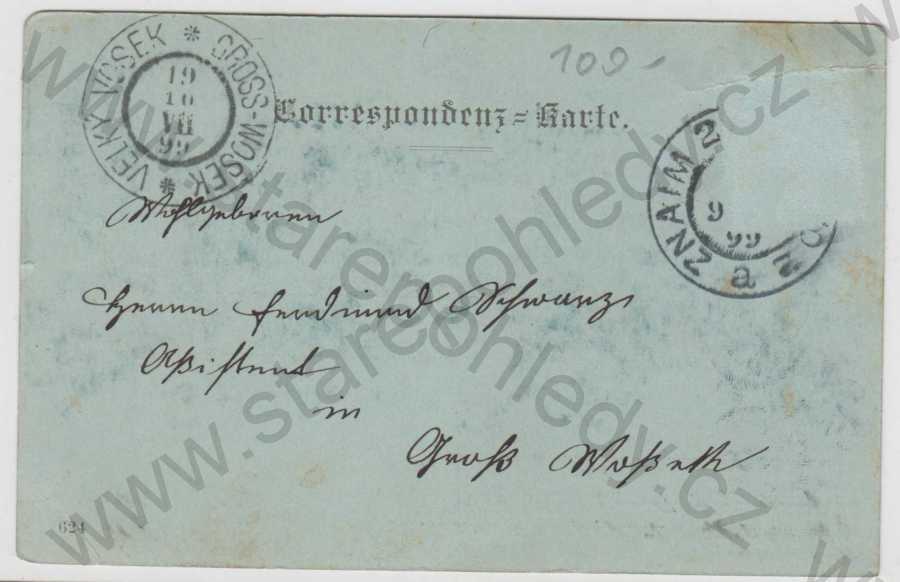 VELKÝ VOSEK * GROSS-WOSEK *
19
10
VII
99
109-
Correspondenz-Karte.
ZNAIM 2
9
99
a
Wohlgeboren
Herrn Ferdinand Schwarz
Aßistent
in
Groß Woßek
624
www.starepohledy.cz